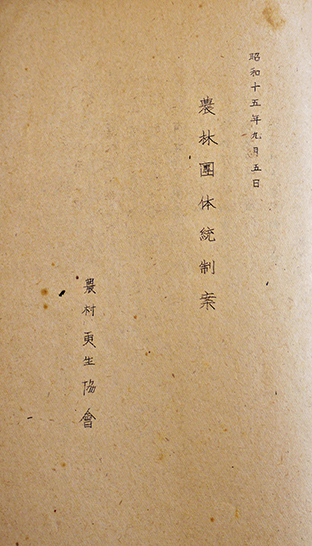 昭和十五年九月五日
農林團体統制案
農村更生協會